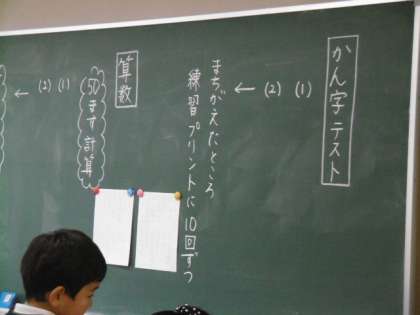 かん字テスト
(1) (2)
←
まちがえたところ
練習プリントに10回ずつ
算数
50ます計算
(1) (2)
←